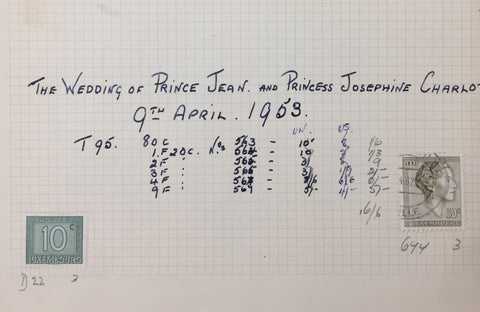 THE WEDDING OF PRINCE JEAN. AND PRINCESS JOSEPHINE CHARLOT
9TH APRIL. 1953.
UN. US.
T95. 80C Nos 563 - 10 8 1/6
1.F 20C. : 564 - 10
2F : 565 - 3/ 9
3F : 566 - 3/
4F : 568 - 6/6 2/-
9F : 569 - 5/- 4/- 5/-
16/6
POSTES
10C
LUXEMBOURG
50C
LUXEMBOURG
D 22 3
644 3